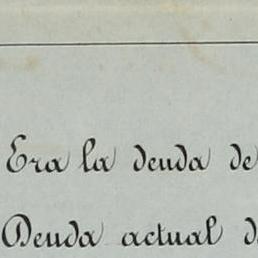 Era la deuda de
Deuda actual d